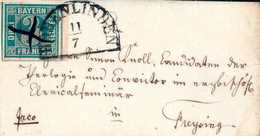 BAYERN
FRANCO
HOHENLINDEN
11
7
Simon Knoll, Candidaten der
Theologie und Convictor im erzbischöfl.
Clericalseminär
in
Freysing